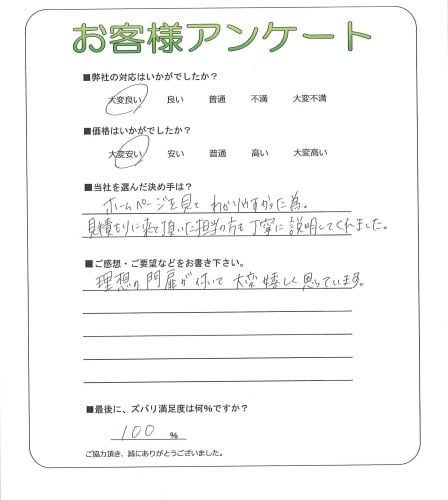 お客様アンケート
■弊社の対応はいかがでしたか?
大変良い 良い 普通 不満 大変不満
■価格はいかがでしたか?
大変安い 安い 普通 高い 大変高い
■当社を選んだ決め手は?
ホームページを見て わかりやすかった為。
見積もりに来て頂いた担当の方も丁寧に説明してくれました。
■ご感想・ご要望などをお書き下さい。
理想の門扉が付いて 大変嬉しく思っています。
■最後に、ズバリ満足度は何%ですか?
100 %
ご協力頂き、誠にありがとうございました。